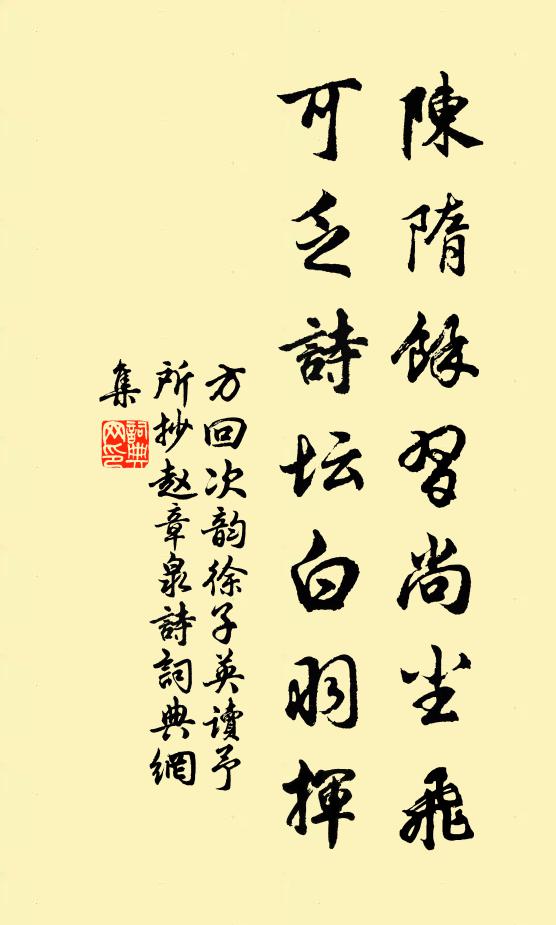 陳隋餘習尚尘飛
可乏詩坛白羽揮
方回次韵徐子英讀予
所抄赵章泉詩詞典網
集
詞典網印